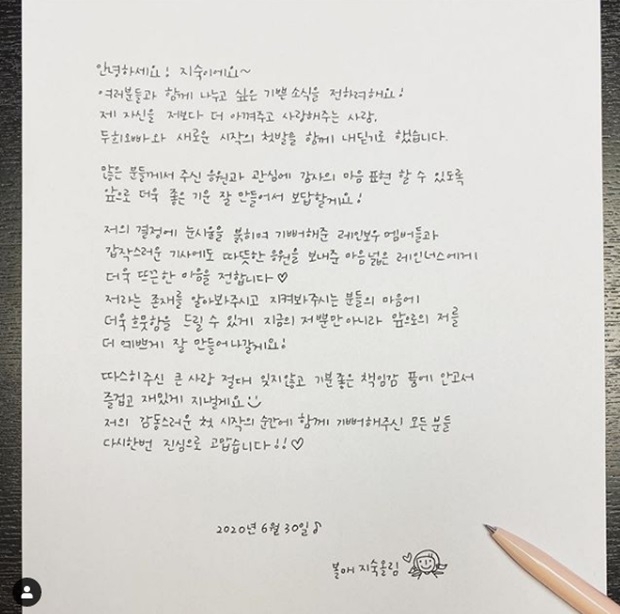 안녕하세요! 지숙이에요~
여러분들과 함께 나누고 싶은 기쁜 소식을 전하려해요!
제 자신을 저보다 더 아껴주고 사랑해주는 사람,
두희오빠와 새로운 시작의 첫발을 함께 내딛기로 했습니다.
많은 분들께서 주신 응원과 관심에 감사의 마음 표현 할 수 있도록
앞으로 더욱 좋은 기운 잘 만들어서 보답할게요!
저의 결정에 눈시울을 붉히며 기뻐해준 레인보우 멤버들과
갑작스러운 기사에도 따뜻한 응원을 보내준 마음넓은 레인너스에게
더욱 뜨끈한 마음을 전합니다♡
저라는 존재를 알아봐주시고 지켜봐주시는 분들의 마음에
더욱 흐뭇함을 드릴 수 있게 지금의 저뿐만아니라 앞으로의 저를
더 예쁘게 잘 만들어나갈게요!
따스히주신 큰 사랑 절대 잊지않고 기분좋은 책임감 품에 안고서
즐겁고 재밌게 지낼게요
저의 감동스러운 첫 시작의 순간에 함께 기뻐해주신 모든분들
다시한번 진심으로 고맙습니다!!♡
2020년 6월 30일♪
볼매 지숙올림